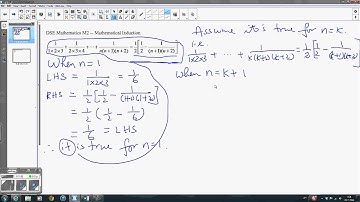 DSE Mathematics M2 – Mathematical Induction
1/(1×2×3) + 1/(2×3×4) + ··· + 1/(n(n+1)(n+2)) = 1/2 [1/2 − 1/((n+1)(n+2))]
When n=1
LHS = 1/(1×2×3) = 1/6
RHS = 1/2 [1/2 − 1/((1+1)(1+2))]
= 1/2 (1/2 − 1/6)
= 1/6 = LHS
∴ it is true for n=1.
Assume it's true for n=k.
i.e.
1/(1×2×3) + ··· + 1/(k(k+1)(k+2)) = 1/2 [1/2 − 1/((k+1)(k+2))]
When n=k+1